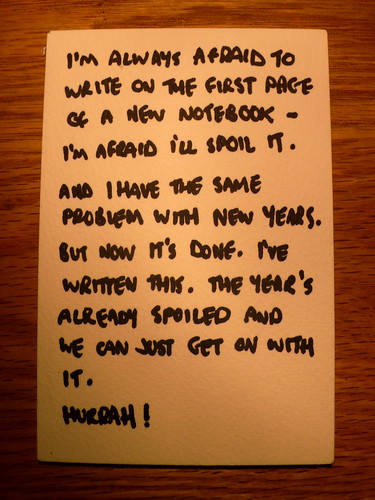 I'M ALWAYS AFRAID TO
WRITE ON THE FIRST PAGE
OF A NEW NOTEBOOK –
I'M AFRAID I'LL SPOIL IT.
AND I HAVE THE SAME
PROBLEM WITH NEW YEARS.
BUT NOW IT'S DONE. I'VE
WRITTEN THIS. THE YEAR'S
ALREADY SPOILED AND
WE CAN JUST GET ON WITH
IT.
HURRAH!